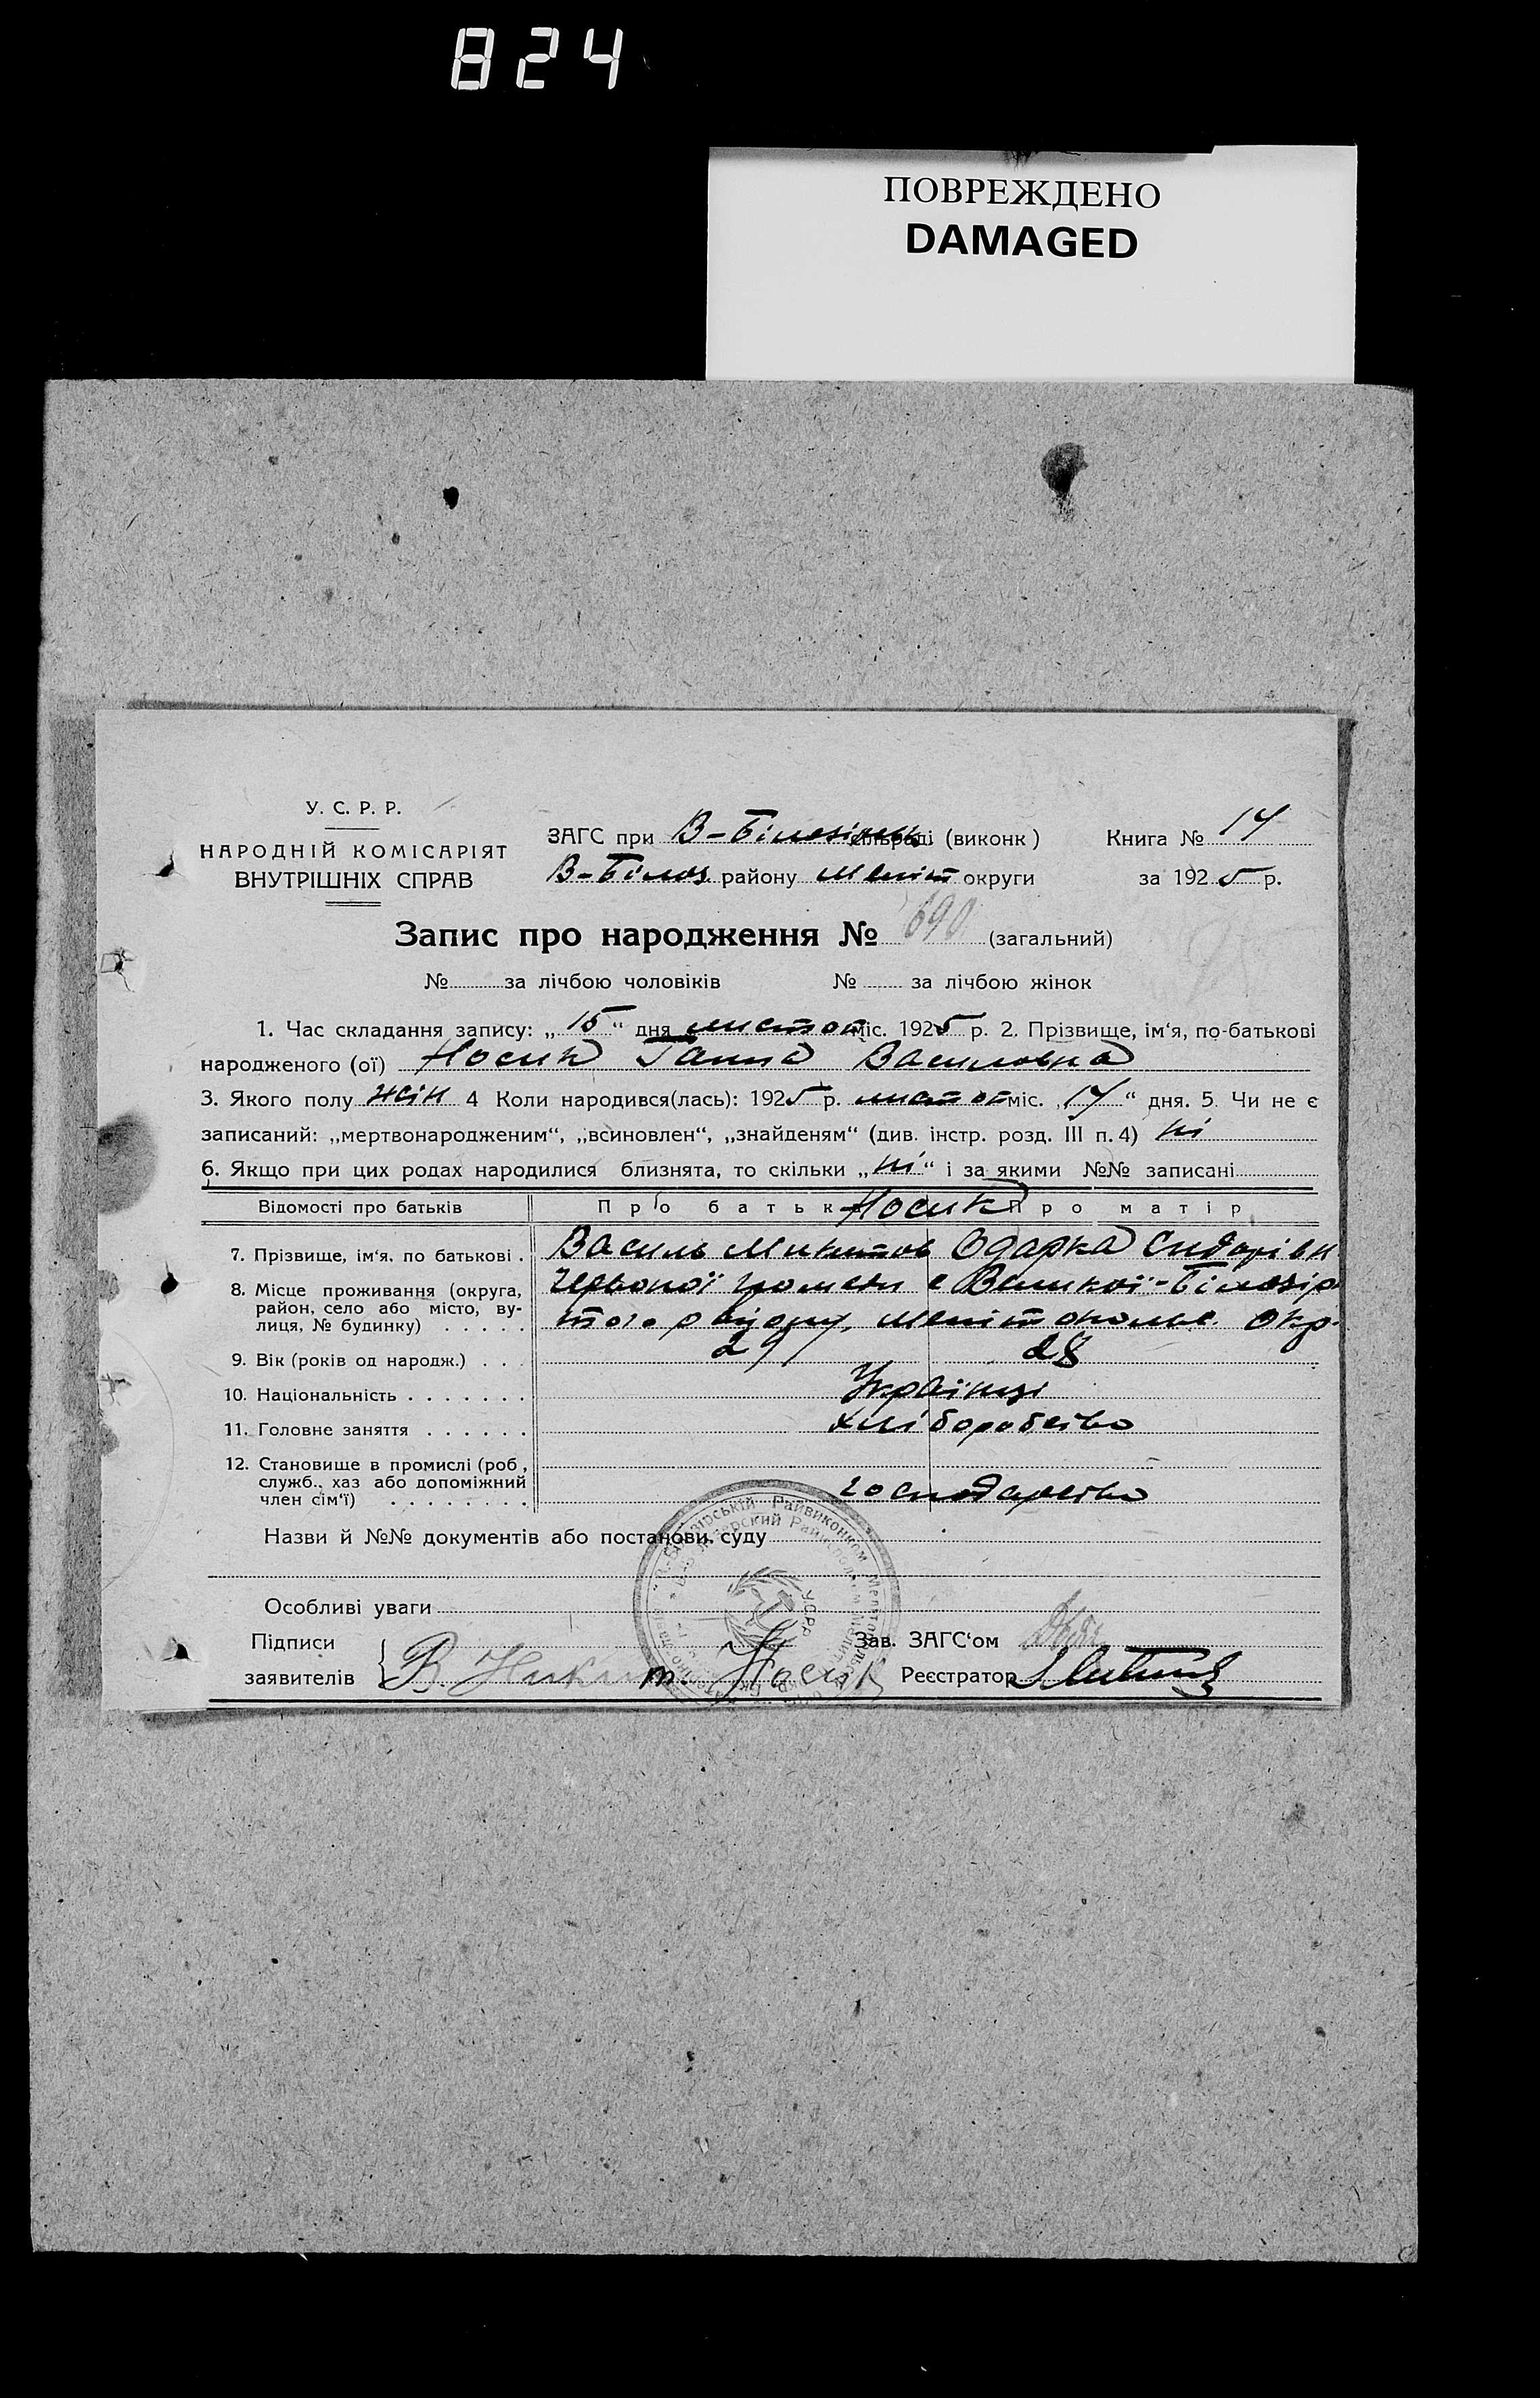 824
ПОВРЕЖДЕНО
DAMAGED
У. С. Р. Р.
НАРОДНІЙ КОМІСАРІЯТ
ВНУТРІШНІХ СПРАВ
ЗАГС при В-Білозірськ. сільраді (виконк) Книга № 14
В-Білоз. району Меліт округи за 1925 р.
Запис про народження № 690 (загальний)
№ за лічбою чоловіків № за лічбою жінок
1. Час складання запису: „15“ дня листоп міс. 1925 р. 2. Прізвище, ім‘я, по-батькові
народженого (ої) Носик Ганна Василовна
3. Якого полу жін 4 Коли народився(лась): 1925 р. листоп міс. „14“ дня. 5. Чи не є
записаний: „мертвонародженим“, „всиновлен“, „знайденям“ (див. інстр. розд. III п. 4) ні
6. Якщо при цих родах народилися близнята, то скільки „ні“ і за якими №№ записані
Відомості про батьків Про батьк Носик Про матір
7. Прізвище, ім‘я. по батькові . Василь Микитов Одарка Сидорівн
8. Місце проживання (округа, район, село або місто, вулиця, № будинку) . . . . . Червоної громади с Великої-Білозір
того району, Мелітопольс. Окр.
9. Вік (років од народж.) . . . 29 28
10. Національність . . . . . . . Українці
11. Головне заняття . . . . . . хліборобство
12. Становище в промислі (роб,
служб., хаз або допоміжний
член сім‘ї) . . . . . . . . господарство
Назви й №№ документів або постанови. суду
Особливі уваги
Підписи Зав. ЗАГС‘ом
заявителів В. Никит. Носик Реєстратор
УСРР